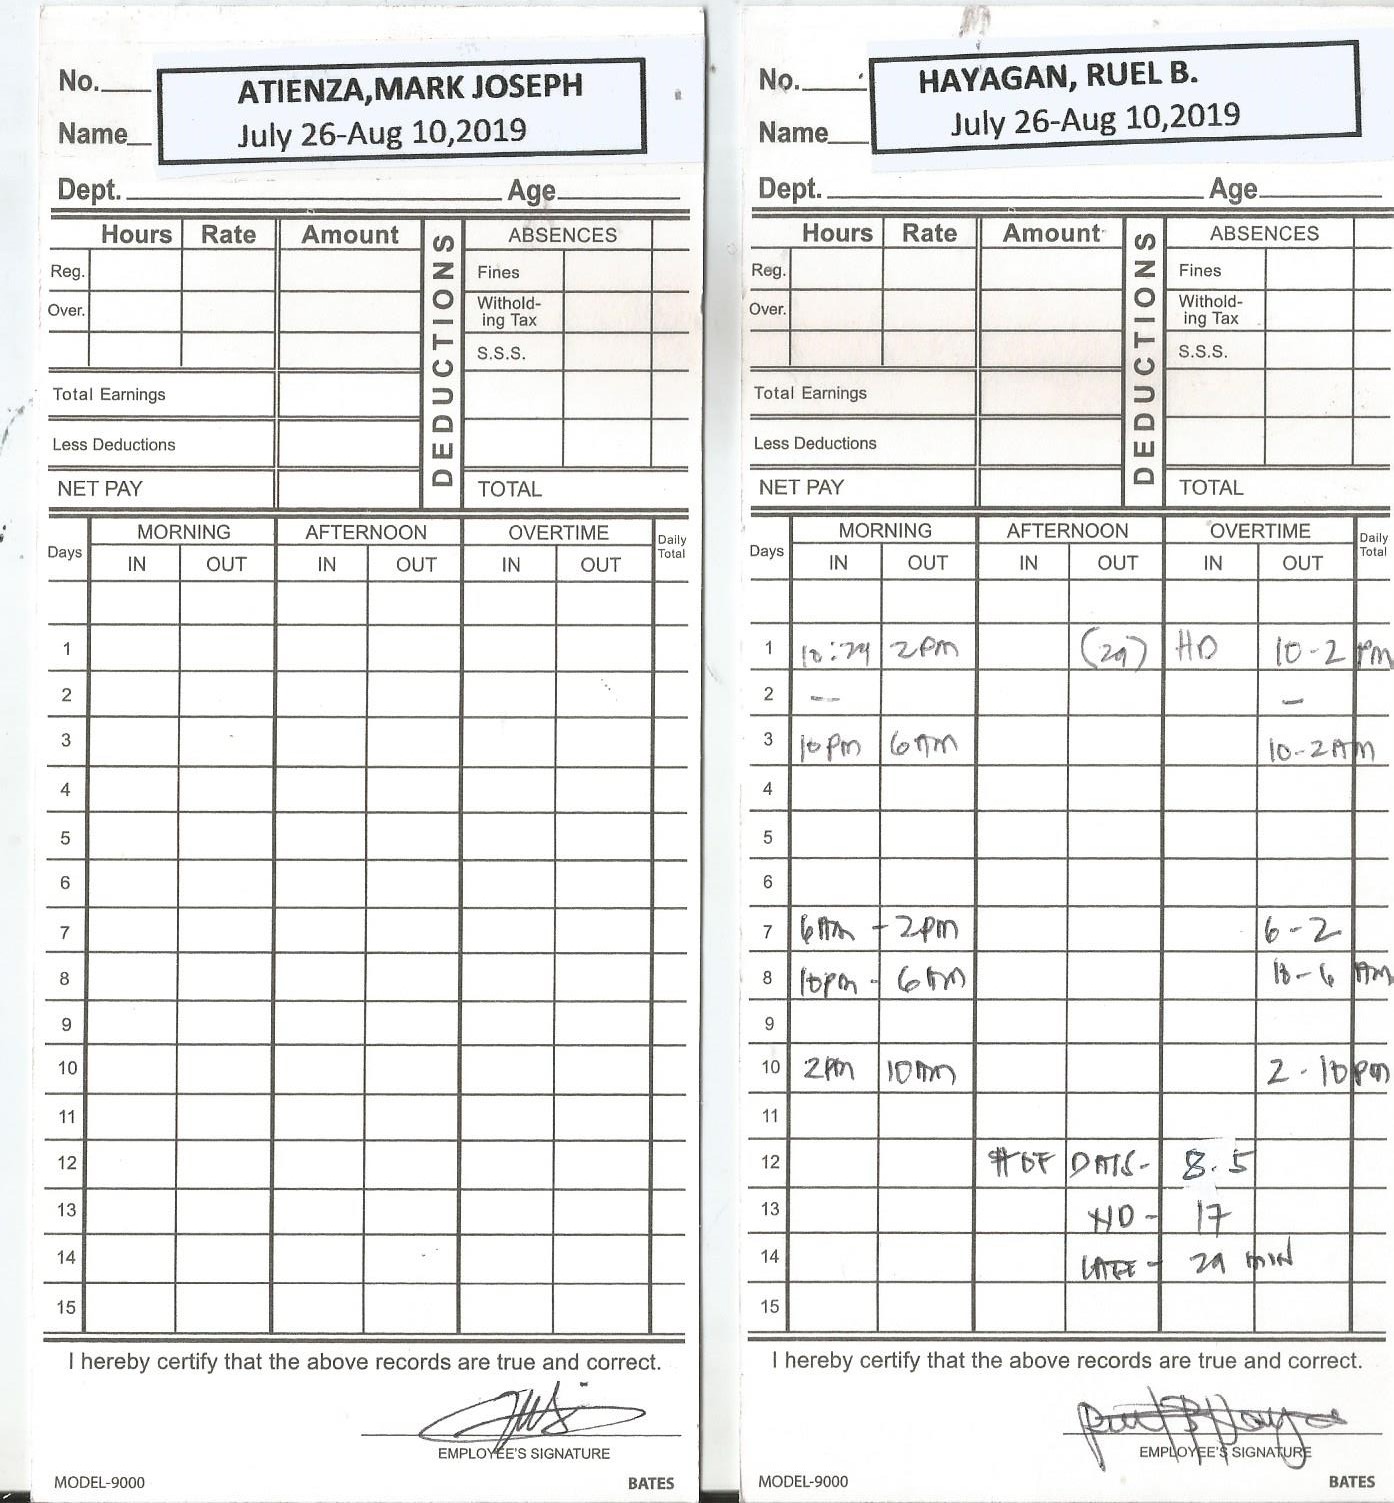 No.
ATIENZA,MARK JOSEPH
Name
July 26-Aug 10,2019
Dept. Age
Hours Rate Amount DEDUCTIONS ABSENCES
Reg. Fines
Over. Withold-
ing Tax
S.S.S.
Total Earnings
Less Deductions
NET PAY TOTAL
Days MORNING AFTERNOON OVERTIME Daily Total
IN OUT IN OUT IN OUT
1
2
3
4
5
6
7
8
9
10
11
12
13
14
15
I hereby certify that the above records are true and correct.
EMPLOYEE'S SIGNATURE
MODEL-9000 BATES
No.
HAYAGAN, RUEL B.
Name
July 26-Aug 10,2019
Dept. Age
Hours Rate Amount DEDUCTIONS ABSENCES
Reg. Fines
Over. Withold-
ing Tax
S.S.S.
Total Earnings
Less Deductions
NET PAY TOTAL
Days MORNING AFTERNOON OVERTIME Daily Total
IN OUT IN OUT IN OUT
1 10:29 2PM (29) HD 10-2 PM
2 -- -
3 10PM 6AM 10-2AM
4
5
6
7 6AM - 2PM 6-2
8 10PM - 6AM 10-6 AM
9
10 2PM 10AM 2-10PM
11
12 # OF DAYS- 8.5
13 ND - 17
14 LATE - 29 MIN
15
I hereby certify that the above records are true and correct.
EMPLOYEE'S SIGNATURE
MODEL-9000 BATES